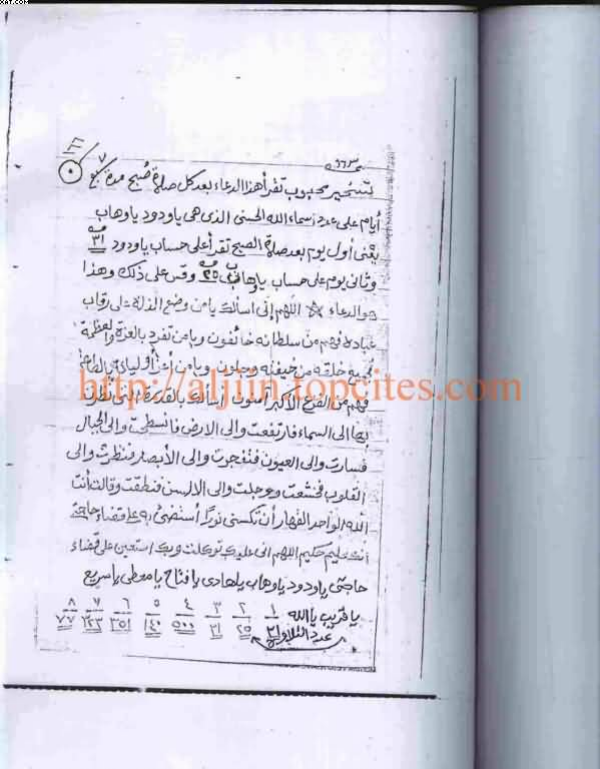 xat.com
١٦٦
٧
٥
٦٦٣
لتسخير محبوب تقرأ هذا الدعاء بعد كل صلاة صبح مدة
أيام على عدد أسماء الله الحسنى الذى هى يا ودود يا وهاب
يعنى أول يوم بعد صلاة الصبح تقرأ على حساب يا ودود ٣١
وثانى يوم على حساب يا وهاب ٢٥ وقس على ذلك وهذا
هو الدعاء اللهم إنى أسألك يا من وضع الذلة على رقاب
عباده فهم من سلطانه خائفون ويا من تفرد بالعزة والعظمة
خلقه من خيفته وجلون ويا من أعز أولياءه
فهم من الفزع الأكبر آمنون أسألك بالقدرة التى نظرت
بها الى السماء فارتفعت والى الارض فانسطحت والى الجبال
فسارت والى العيون فتفجرت والى الأبصار فنظرت والى
القلوب فخشعت ووجلت والى الالسن فنطقت وقالت أنت
الله الواحد القهار أن تكسنى نورًا أستضئ به على قضاء حاجتى
حكيم اللهم انى عليك توكلت وبك استعين على قضاء
حاجتى يا ودود يا وهاب يا هادى يا فتاح يا معطى يا سريع
يا قريب يا الله ١ ٢ ٣ ٤ ٥ ٦ ٧ ٨
عدد التلاوة ٣١ ٢٥ ٣١ ٥٠٠ ١٤٠ ٣٥١ ٣٢٣ ٧٧
http://aljiin.topcites.com